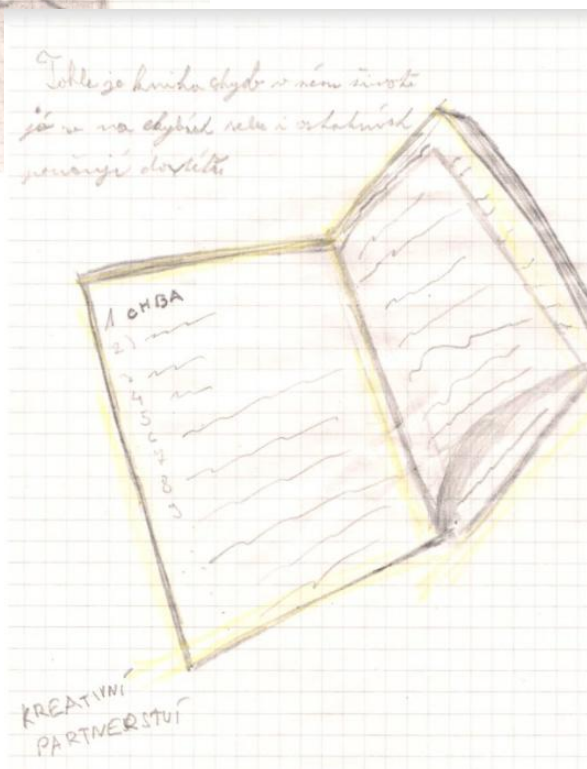 Tohle je kniha chyb v mém životě
já se na chybách sebe i ostatních
1 CHBA
2)
3
4
5
6
7
8
9
KREATIVNÍ
PARTNERSTVÍ